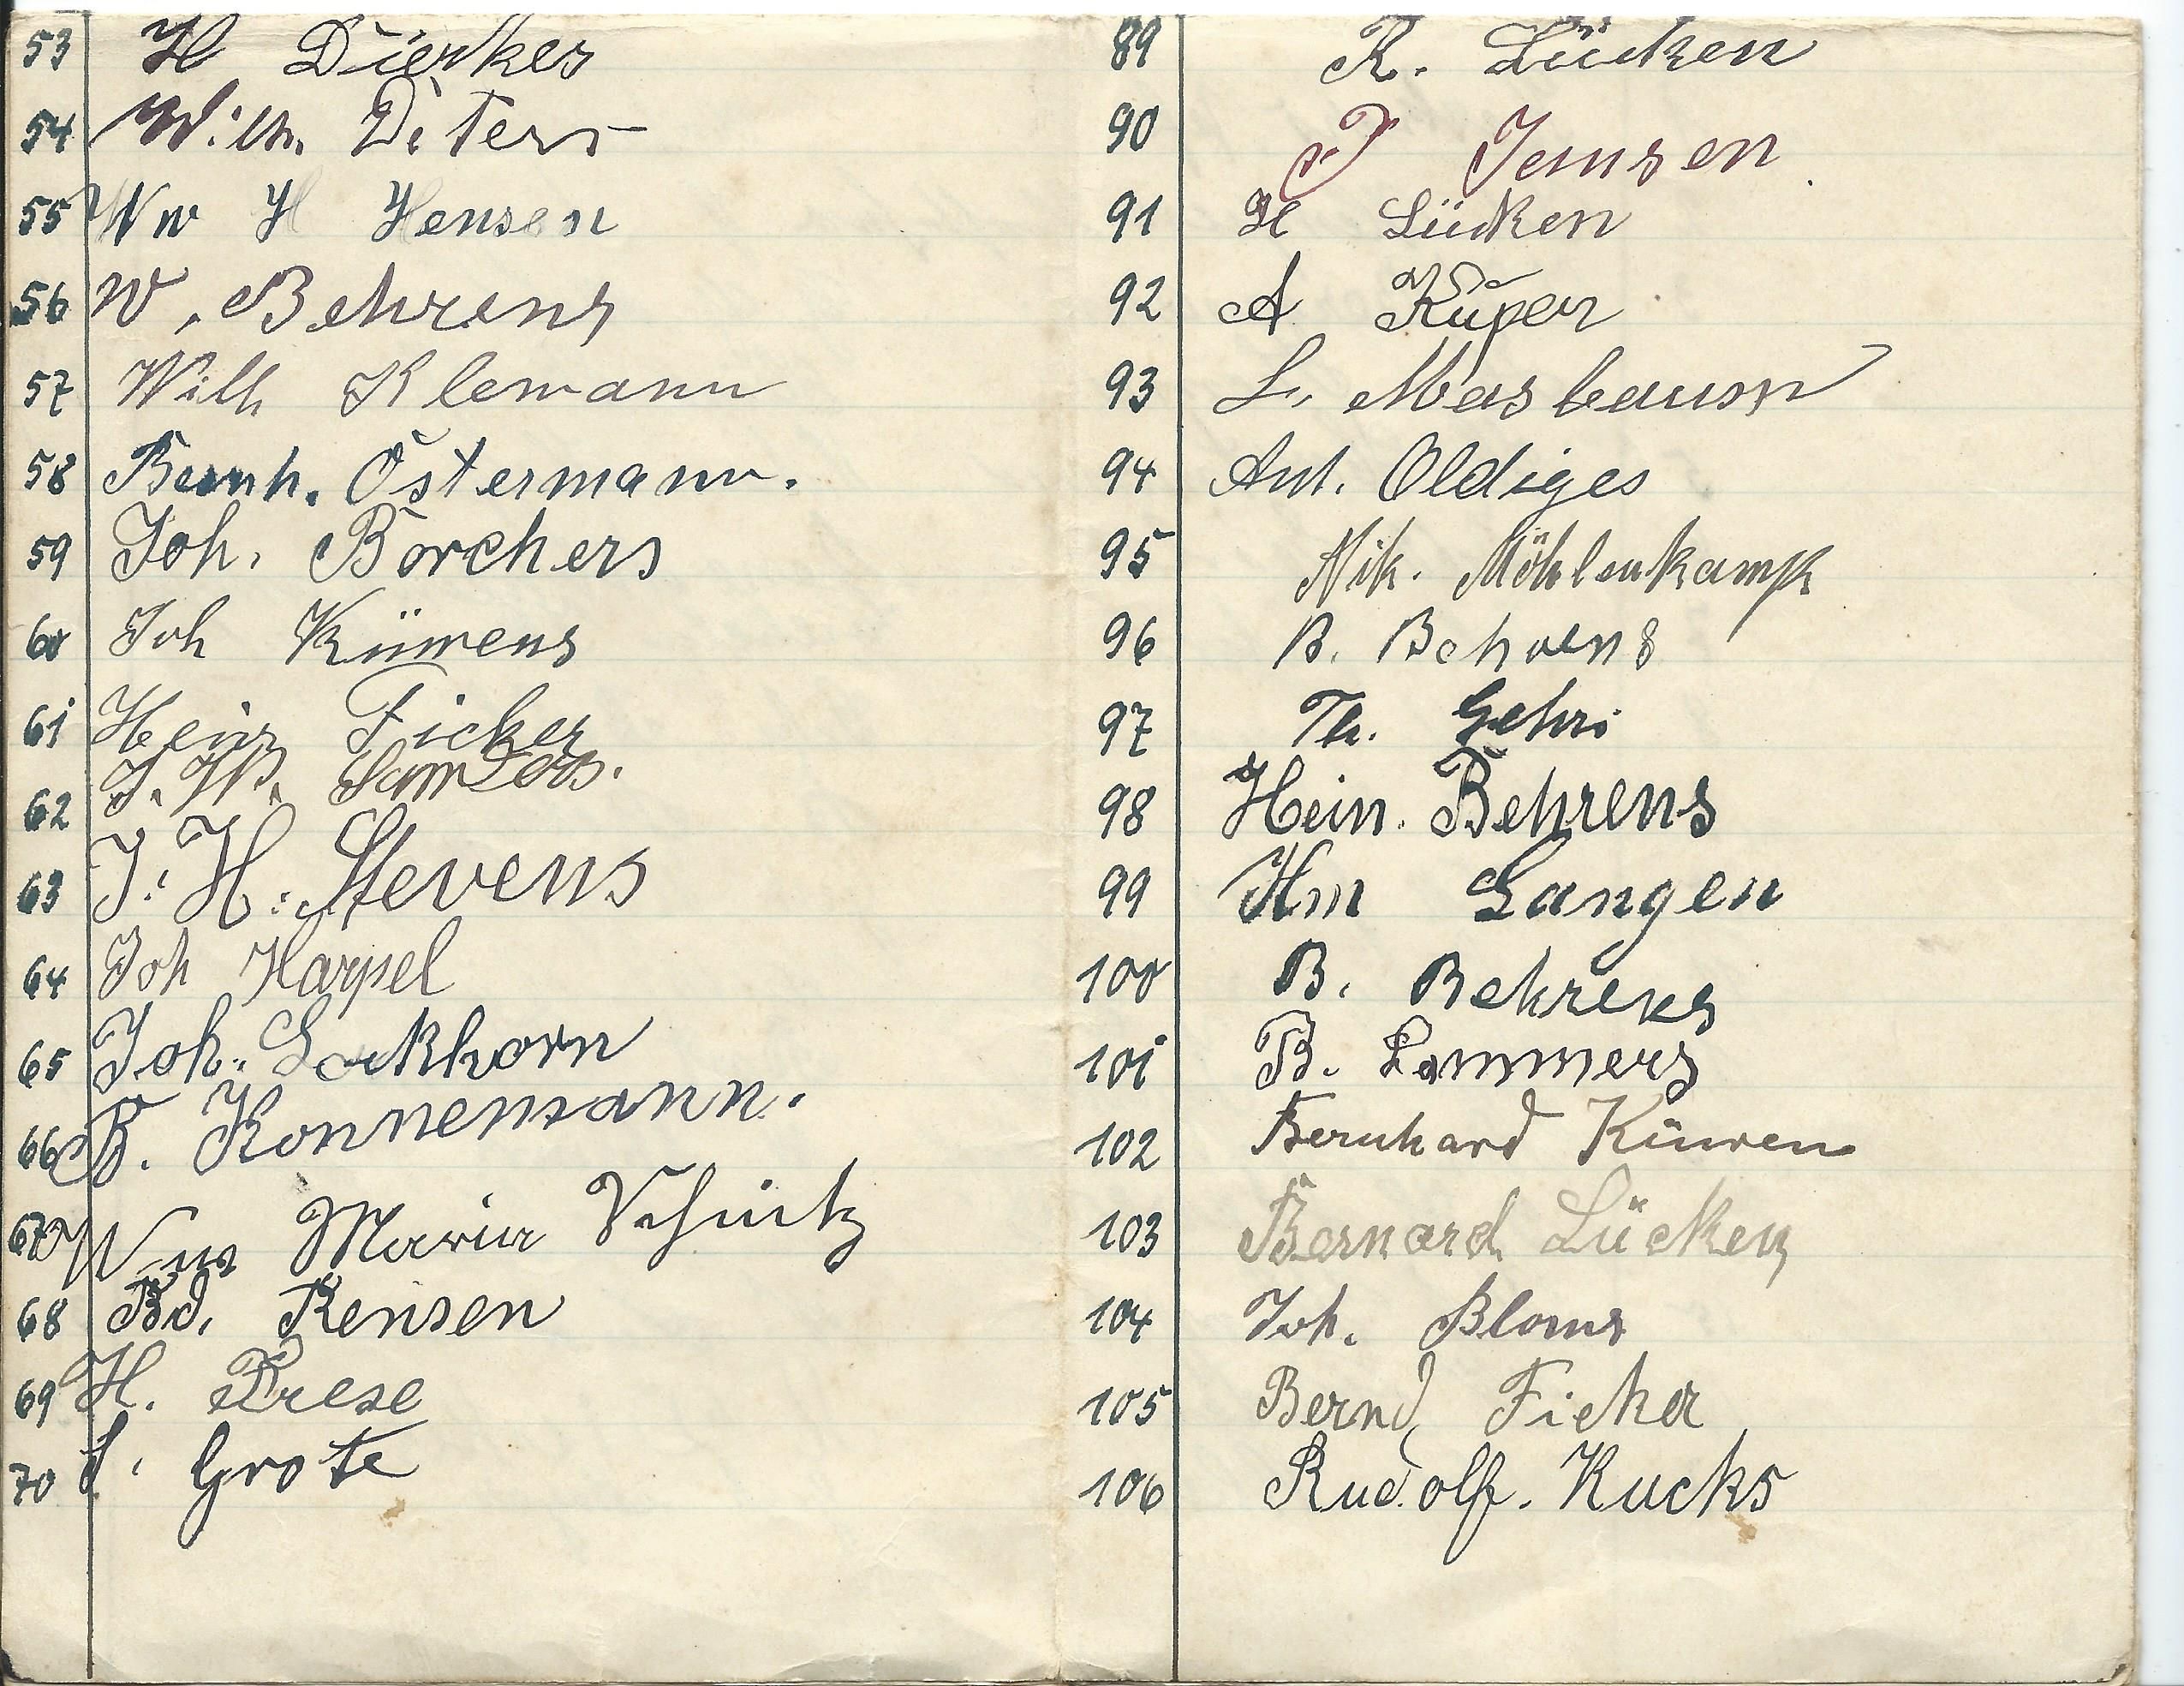 53 H Dierkes
54 Wilh. Diters
55 Ww H Hensen
56 W. Behrens
57 Wilh Klemann
58 Bernh. Ostermann.
59 Joh. Borchers
60 Joh Küwens
61 Heinr Ficker
62 J. W. Sanders.
63 J. H. Stevens
64 Joh Harpel
65 Joh. Lockhorn
66 B. Konnemann.
67 Ww Maria Schütz
68 Bd. Rensen
69 H. Prese
70 S. Grote
89 R. Lücken
90 J Jansen
91 H Lücken
92 A Küper
93 L. Masbaum
94 Ant. Oldiges
95 Nik. Möhlenkamp
96 B. Behrens
97 Th. Gehrs
98 Hein. Behrens
99 Hm Langen
100 B. Behrens
101 B. Lammers
102 Bernhard Küwen
103 Bernard Lücken
104 Joh. Bloms
105 Bernd Ficker
106 Rudolf. Kucks